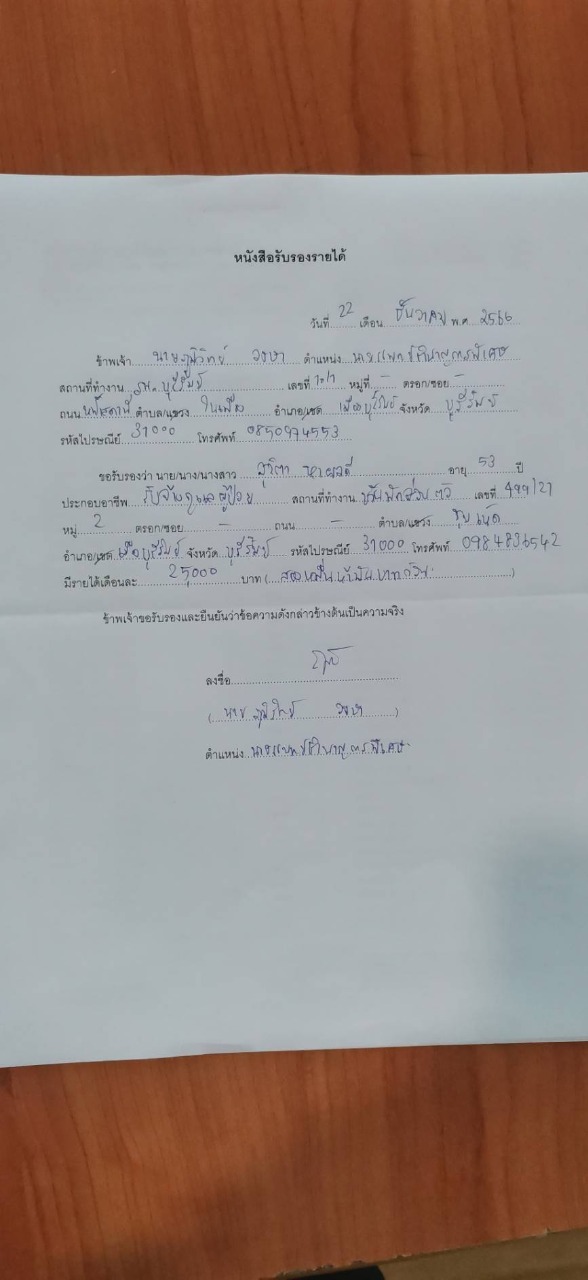 หนังสือรับรองรายได้
วันที่ 22 เดือน ธันวาคม พ.ศ. 2566
ข้าพเจ้า นายภูมิวิทย์ ตำแหน่ง นายแพทย์ชำนาญการพิเศษ
สถานที่ทำงาน รพ. บุรีรัมย์ เลขที่ 10/1 หมู่ที่ - ตรอก/ซอย -
ถนน ตำบล/แขวง ในเมือง อำเภอ/เขต เมืองบุรีรัมย์ จังหวัด บุรีรัมย์
รหัสไปรษณีย์ 31000 โทรศัพท์ 0850974553
ขอรับรองว่า นาย/นาง/นางสาว สุจิตา อายุ 53 ปี
ประกอบอาชีพ รับจ้างดูแลผู้ป่วย สถานที่ทำงาน บ้านพักส่วนตัว เลขที่ 499/27
หมู่ 2 ตรอก/ซอย - ถนน - ตำบล/แขวง ชุมเห็ด
อำเภอ/เขต เมืองบุรีรัมย์ จังหวัด บุรีรัมย์ รหัสไปรษณีย์ 31000 โทรศัพท์ 0984836542
มีรายได้เดือนละ 25,000 บาท ( สองหมื่นห้าพันบาทถ้วน )
ข้าพเจ้าขอรับรองและยืนยันว่าข้อความดังกล่าวข้างต้นเป็นความจริง
ลงชื่อ
( นาย ภูมิวิทย์ )
ตำแหน่ง นายแพทย์ชำนาญการพิเศษ